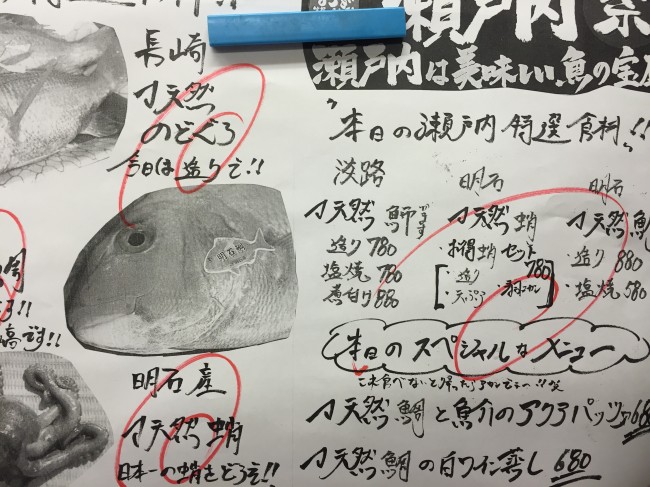 長崎
天然
のどぐろ
今日は造りで!!
明石鯛
明石産
天然蛸
日本一の蛸をどうぞ!!
瀬戸内
瀬戸内は美味しい、魚の宝
"本日の瀬戸内特選食料"!!
淡路
天然
造り 780
塩焼 780
煮付け 880
明石
天然 蛸
・お得蛸セット
780
・造り
・天ぷら
明石
天然
・造り 880
・塩焼 580
本日のスペシャルなメニュー
天然鯛と魚介のアクアパッツァ 680
天然鯛の白ワイン蒸し 680
です!!